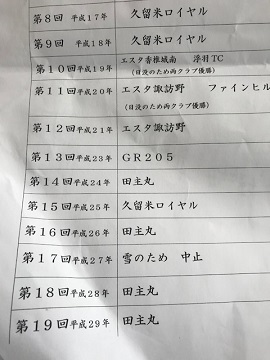 第8回 平成17年 久留米ロイヤル
第9回 平成18年 久留米ロイヤル
第10回 平成19年 エスタ香椎城南 浮羽TC
(日没のため両クラブ優勝)
第11回 平成20年 エスタ諏訪野 ファインヒル
(日没のため両クラブ優勝)
第12回 平成21年 エスタ諏訪野
第13回 平成23年 GR205
第14回 平成24年 田主丸
第15回 平成25年 久留米ロイヤル
第16回 平成26年 田主丸
第17回 平成27年 雪のため 中止
第18回 平成28年 田主丸
第19回 平成29年 田主丸